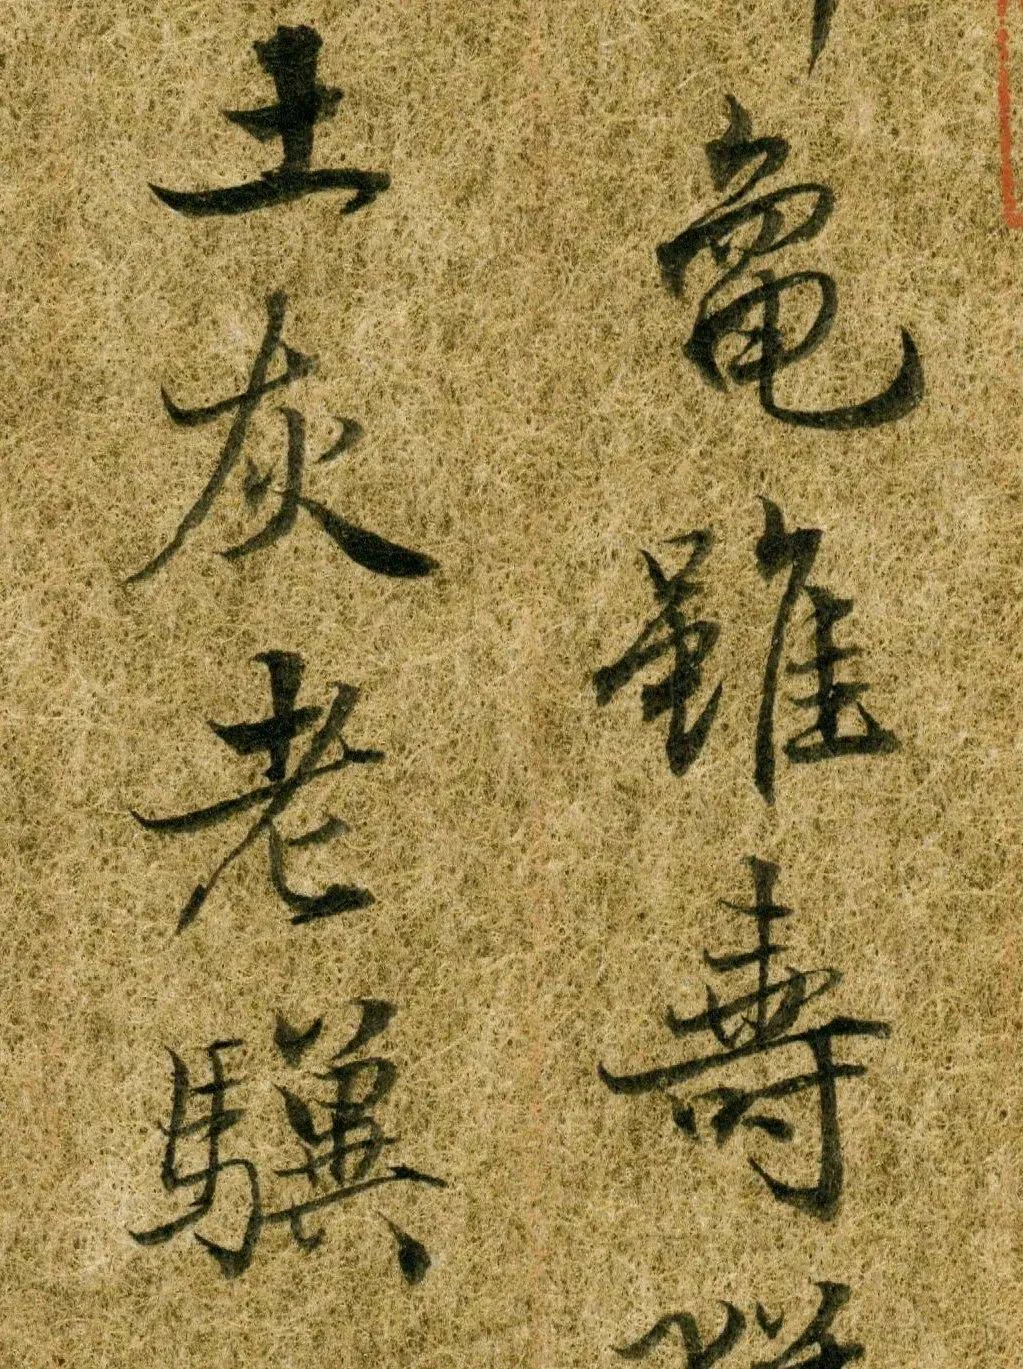 龜雖壽
土灰老驥